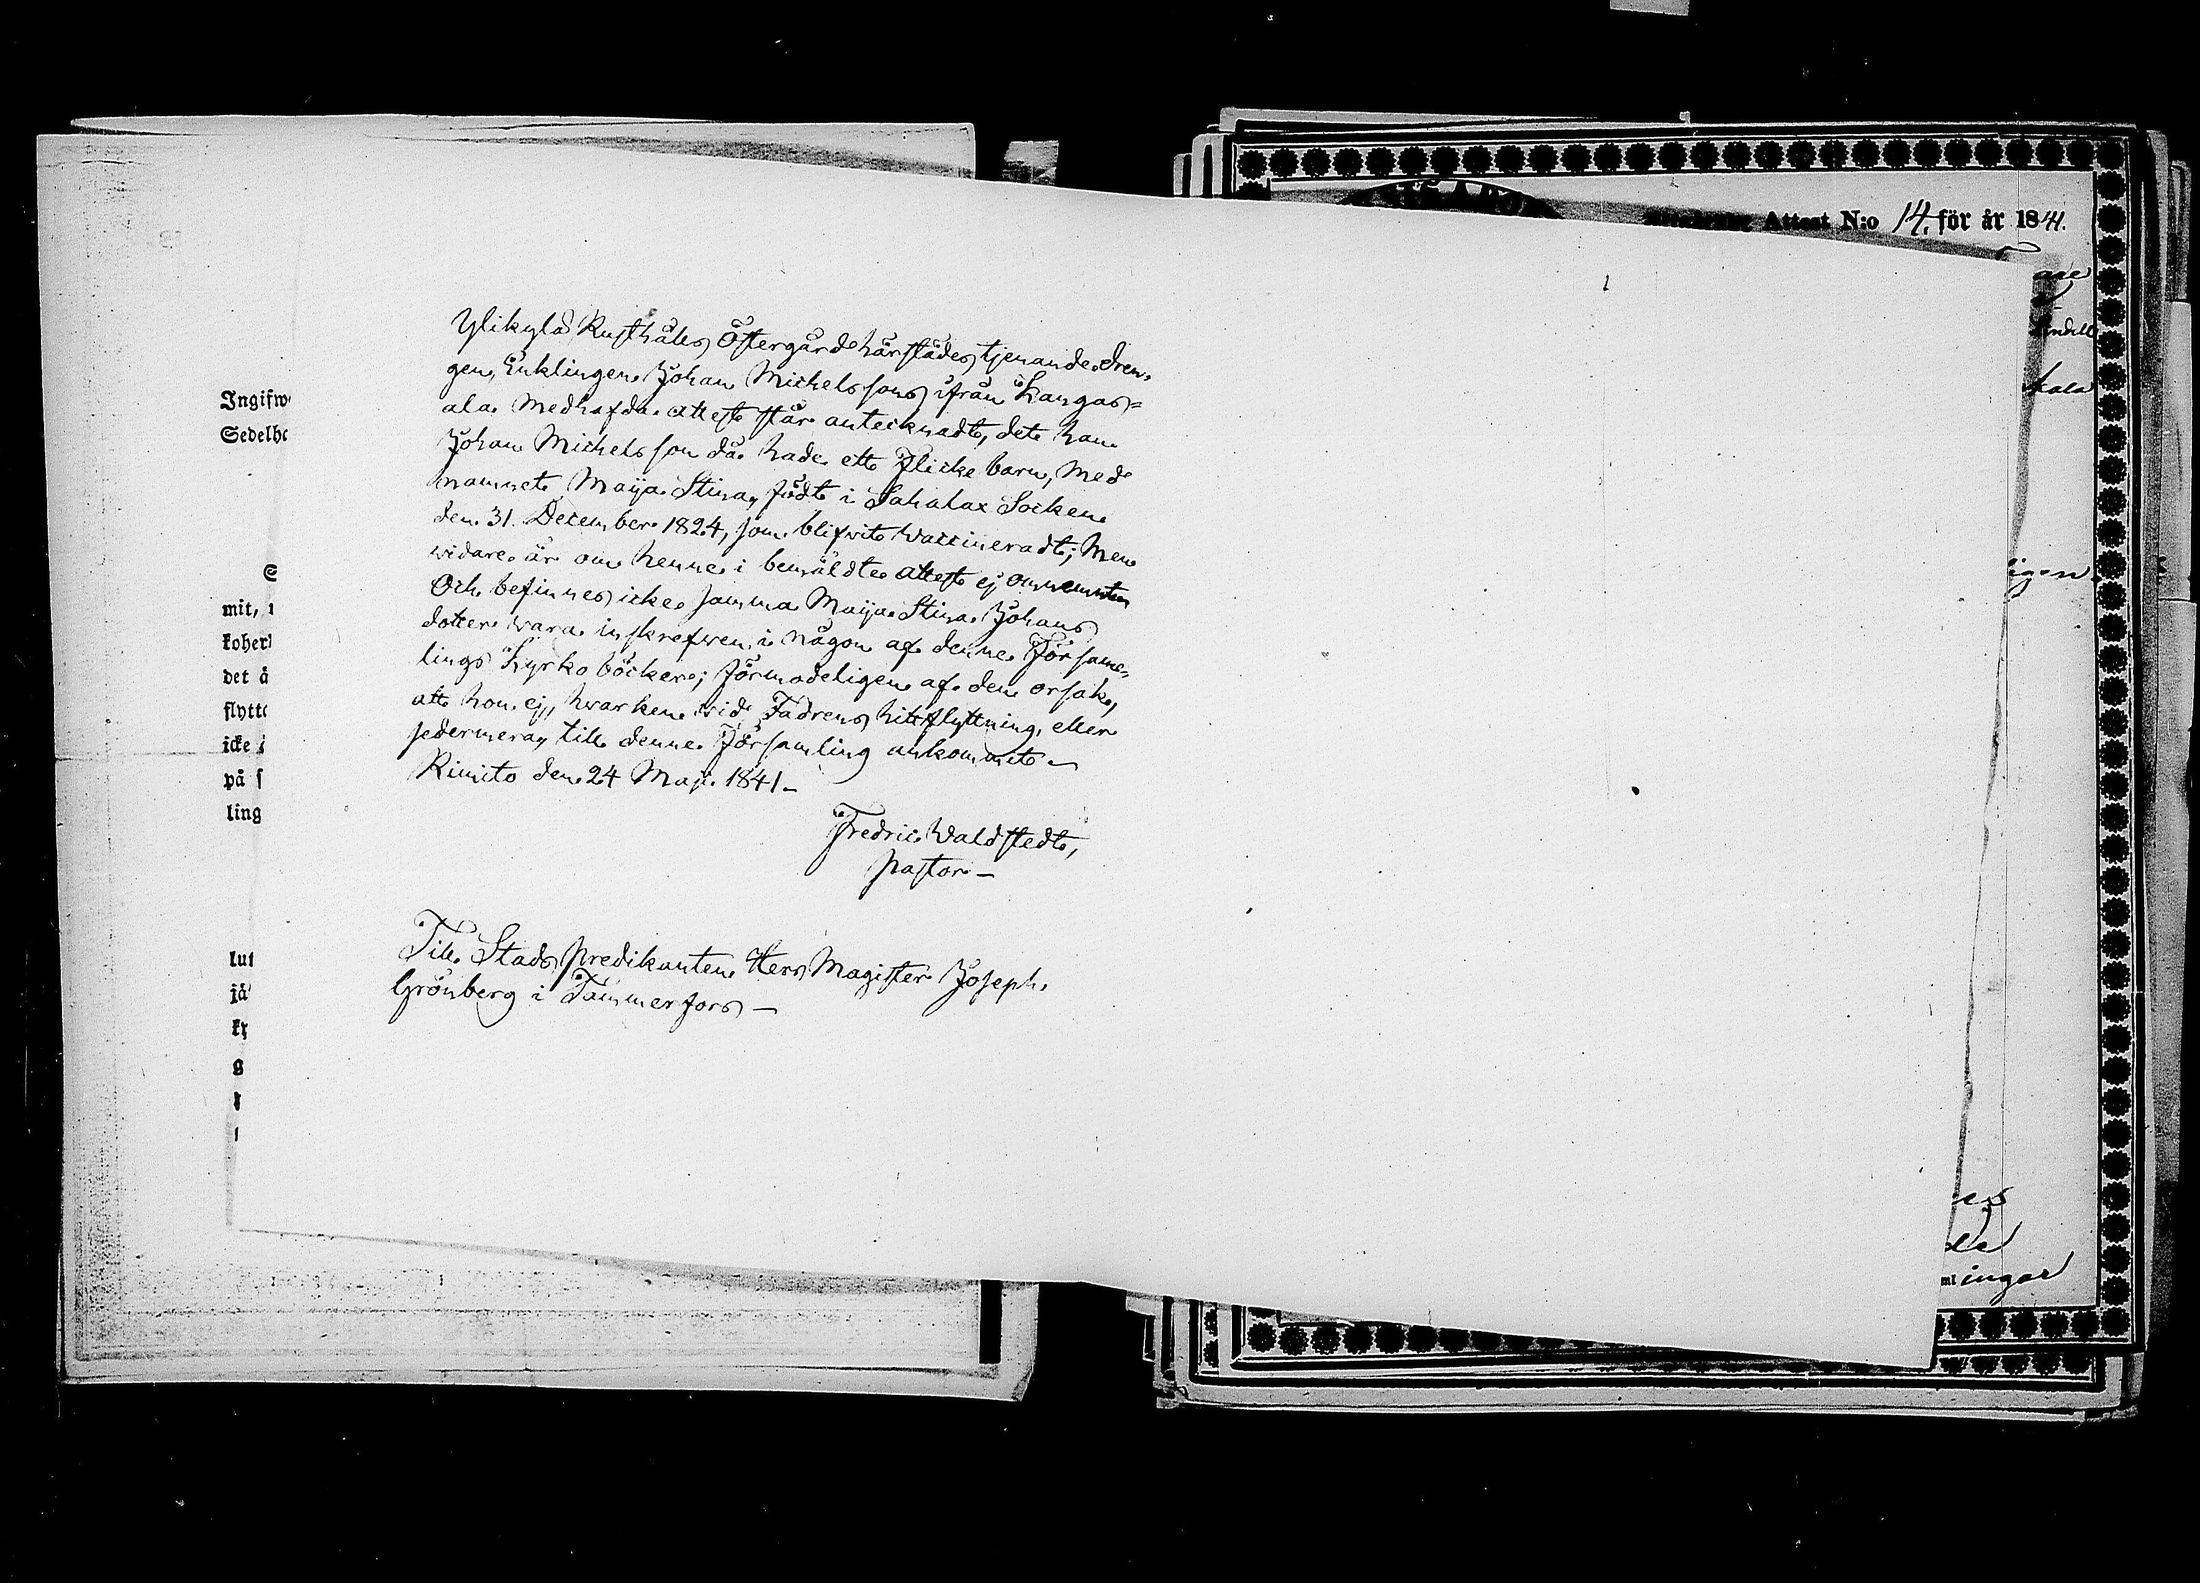 Attest N:o 14. för år 1841.
Ylikylä Rusthålls Östergård härstädes tjenande Drän-
gen, Enklingen Johan Michelssons ifrån Kangas=
ala medhafda attest står antecknadt, det han
Johan Michelsson då hade ett Flicke barn, med
namnet Maija Stina, född i Sahalax Socken
den 31. December 1824, som blifvit Vaccineradt; Men
vidare är om henne i bemäldte attest ej omnemnt
Och befinnes icke samma Maija Stina Johans
dotter vara inskrefven i någon af denne Försam-
lings Kyrko böcker; förmodeligen af den orsak,
att hon ej, hvarken vid Fadrens hitflyttning, eller
sedermera, till denne Församling ankommit.
Rimito den 24 Maji 1841.
Fredric Waldstedt,
pastor
Till Stads predikanten Herr Magister Joseph
Grönberg i Tammerfors
Sedelh
mit,
koher
det ä
flytt
icke
på
ling
ingar